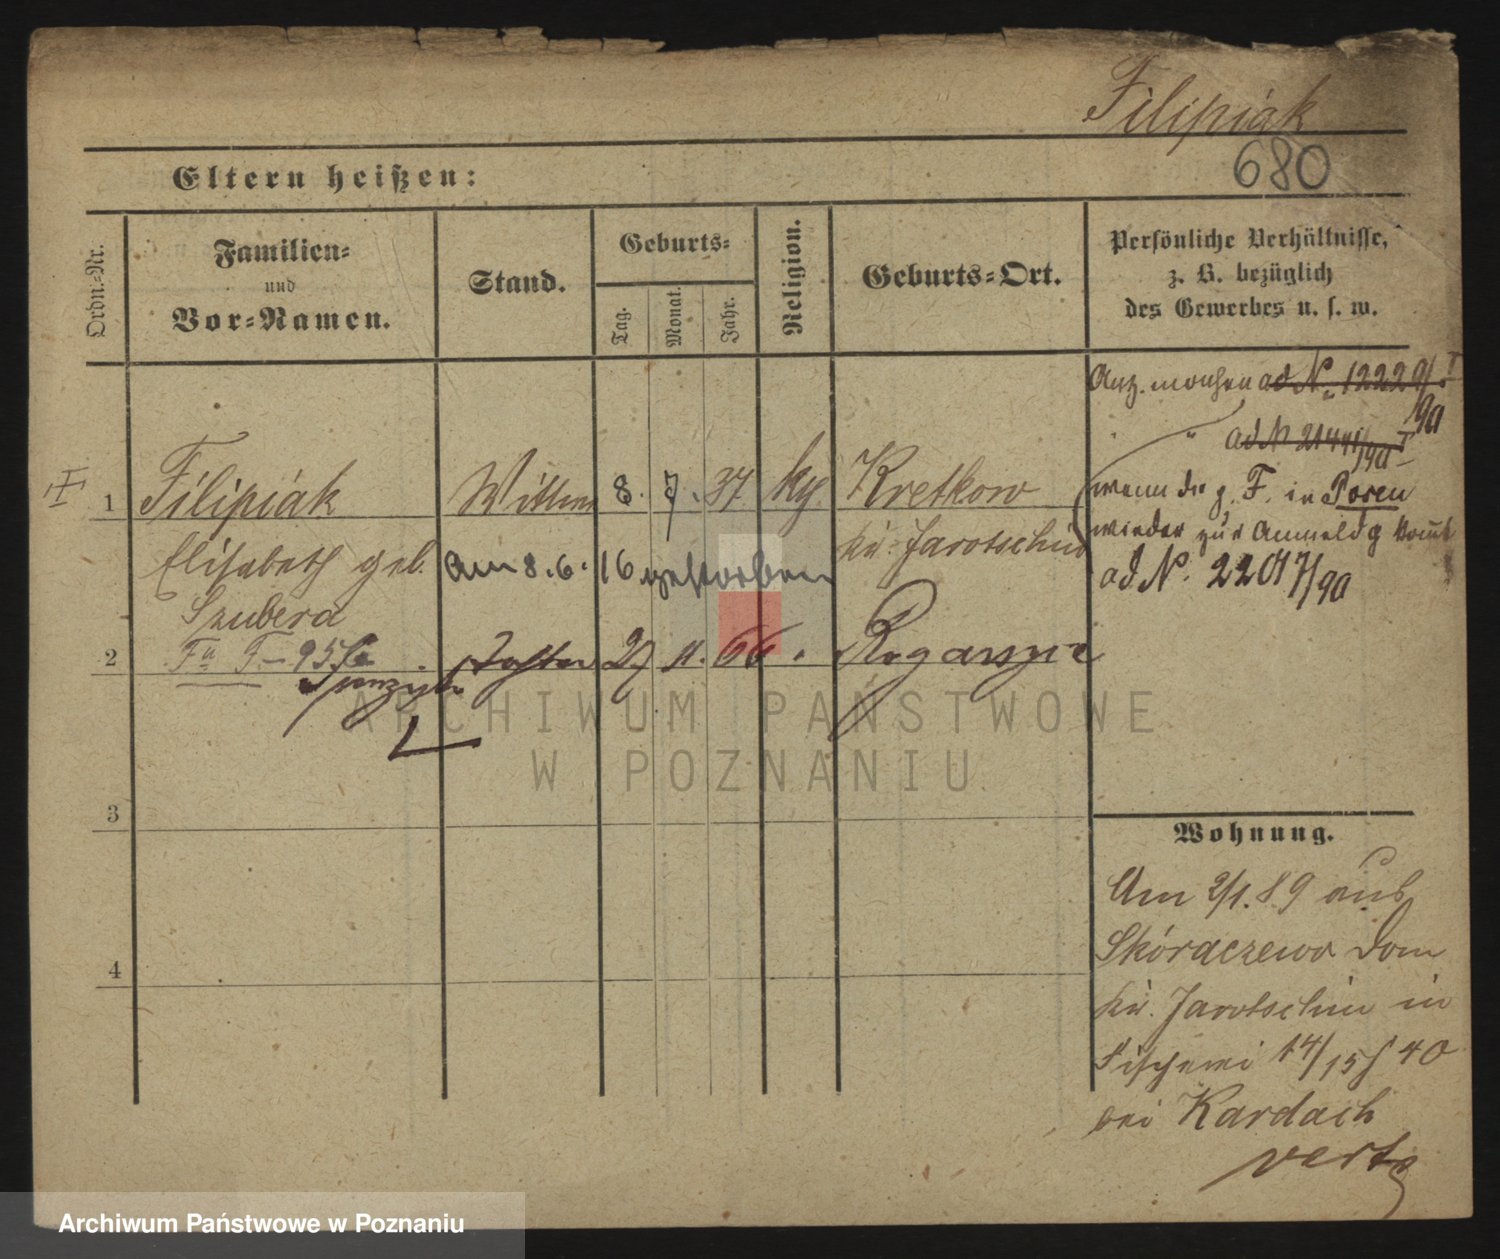 Filipiak
680
Eltern heißen:
Ordn.=Nr.
Familien=
und
Vor=Namen.
Stand.
Geburts=
Tag.
Monat.
Jahr.
Religion.
Geburts=Ort.
Persönliche Verhältnisse,
z. B. bezüglich
des Gewerbes u. s. w.
ad N. 12229/I
/90
" ad N 21441/I
/90
1
Filipiak
Wittwe
8. 7. 37
kg.
Kretkow
wenn die g. F. in Posen
Elisabeth geb.
am 8.6.16 gestorben
Kr. Jarotschin
wieder zur Anmeldg kommt
Szubera
ad N. 2207/90
2
Tochter
27 11. 66.
3
Wohnung.
Am 2/1. 89 aus
Skóraczewo Dom
4
Kr. Jarotschin in
Fischerei 14/15 J 40
bei Kardach
verte
ARCHIWUM PAŃSTWOWE
W POZNANIU
Archiwum Państwowe w Poznaniu